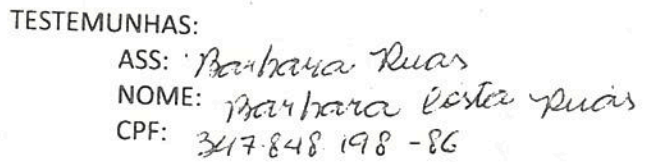 TESTEMUNHAS:
ASS: Barbara Ruas
NOME: Barbara Costa Ruas
CPF: 347.848.198-86